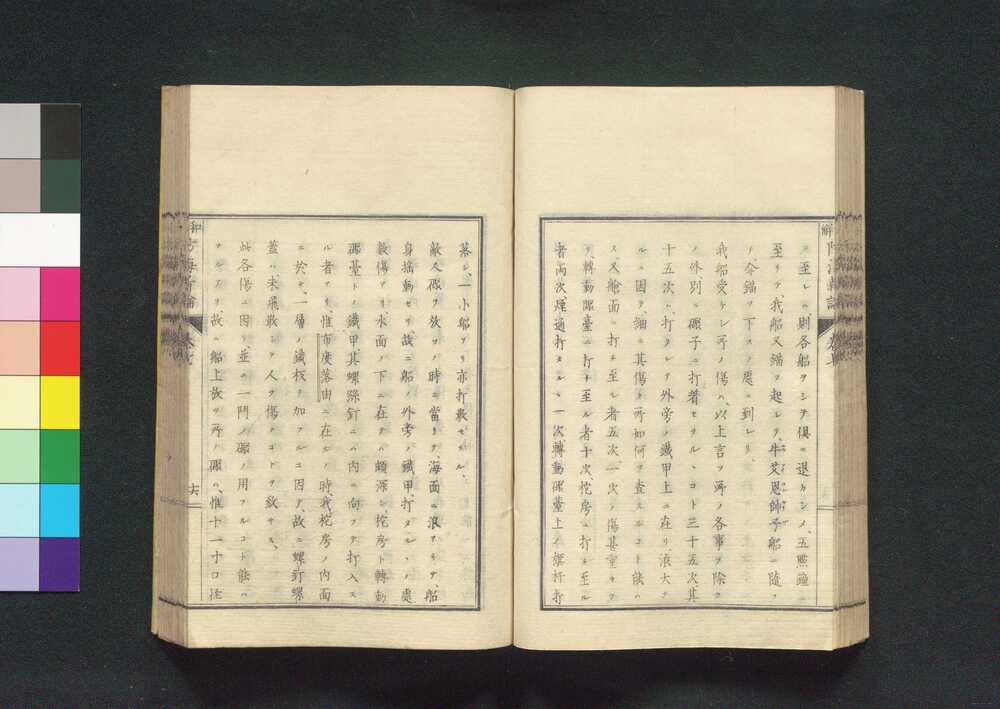 ニ至レハ則各船ヲシテ俱ニ退カシメ、五點鐘ニ
至リテ、我船又錨ヲ起シテ、牛艾恩帥乎船ニ隨ヒ
テ、令錨ヲ下スノ處ニ到レリ、
我船受ケシ所ノ傷ハ、以上言フ所ノ各事ヲ除クノ
外別ニ礮子ニ打着セラルヽコト三十五次其
十五次ハ打タレテ外旁ノ鐵甲上ニ在リ、浪大ナ
ルニ因テ、細ニ其傷ノ所如何ヲ查スルコト能ハ
ス、又艙面ニ打チ至レル者五次、一次ノ傷甚重キヲ
轉動礮臺ニ打チ至ル者十次、柁房ニ打チ至ル
者兩次、煙通打タルヽ一次、轉動礮臺上ノ旗杆打
落シ、一小船アリ亦打散セラル、
敵人礮ヲ放ツノ時ニ當リテ、海面ニ浪アラテ、船
身搖動セリ、故ニ船ノ外旁ノ鐵甲、打タルヽノ處
數傷アリ、水面ノ下ニ在テハ頗深シ、柁房ト轉動
礮臺トノ鐵甲其螺絲釘ニハ內ニ向フテ打入ス
ル者アリ、惟布庚落由ニ在ルノ時、我柁房ノ內面
ニ於テ、一層ノ鐵板ヲ加フルニ因テ、故ニ螺釘螺
蓋ハ、未飛散シテ人ヲ傷クコトヲ致サス、
此各傷ニ因リ、並ニ一門ノ礮ノ用フルコト能ハ
サルアリ、故ニ船上放ツ所ノ礮ハ、惟十一寸口徑
十六